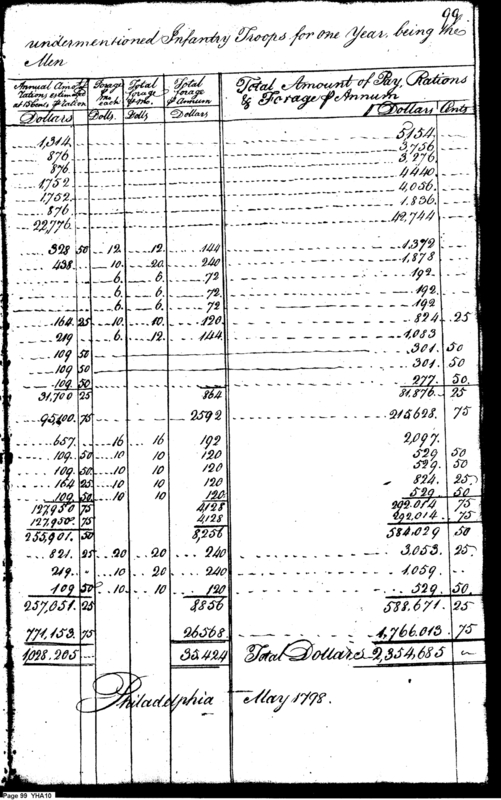 99
undermentioned Infantry Troops for one Year, being the
Men
Annual Amot. Rations estimated at 15 Cents pr ration Dollars | Forage for one each Dolls. | Total Forage Dolls | Total Forage pr Annum Dollars | Total Amount of Pay, Rations & Forage pr Annum Dollars | Cents
1,314. 5154.
876 3,756
876 3,276
1,752 4440
1,752. 4,056.
876 1,836.
22,776. 42,744
328 50 12. 12. 144 1,392
438 10. 20. 240 1,878
6. 6. 72 192
6. 6. 72 192
6. 6. 72 192
164 25 10. 10. 120 824 25
219 6. 12. 144 1,083
109 50 301 50
109 50 301 50
109 50 277 50
31,700 25 864 81,876 25
95,100 75 2592 245,628 75
657 16 16 192 2,097
109 50 10 10 120 529 50
109 50 10 10 120 529 50
164 25 10 10 120 824 25
109 50 10 10 120 529 50
127,950 75 4128 292,014 75
127,950 75 4128 292,014 75
255,901. 50 8,256 584,029 50
821. 25 20 20 240 3,053 25
219. 10 20 240 1,059
109 50 10 10 120 529 50
257,051 25 8856 588,671 25
771,153 75 26568 1,766,013 75
1,028,205 35,424 Total Dollars 2,354,685
Philadelphia May 1798.
Page 99 YHA10